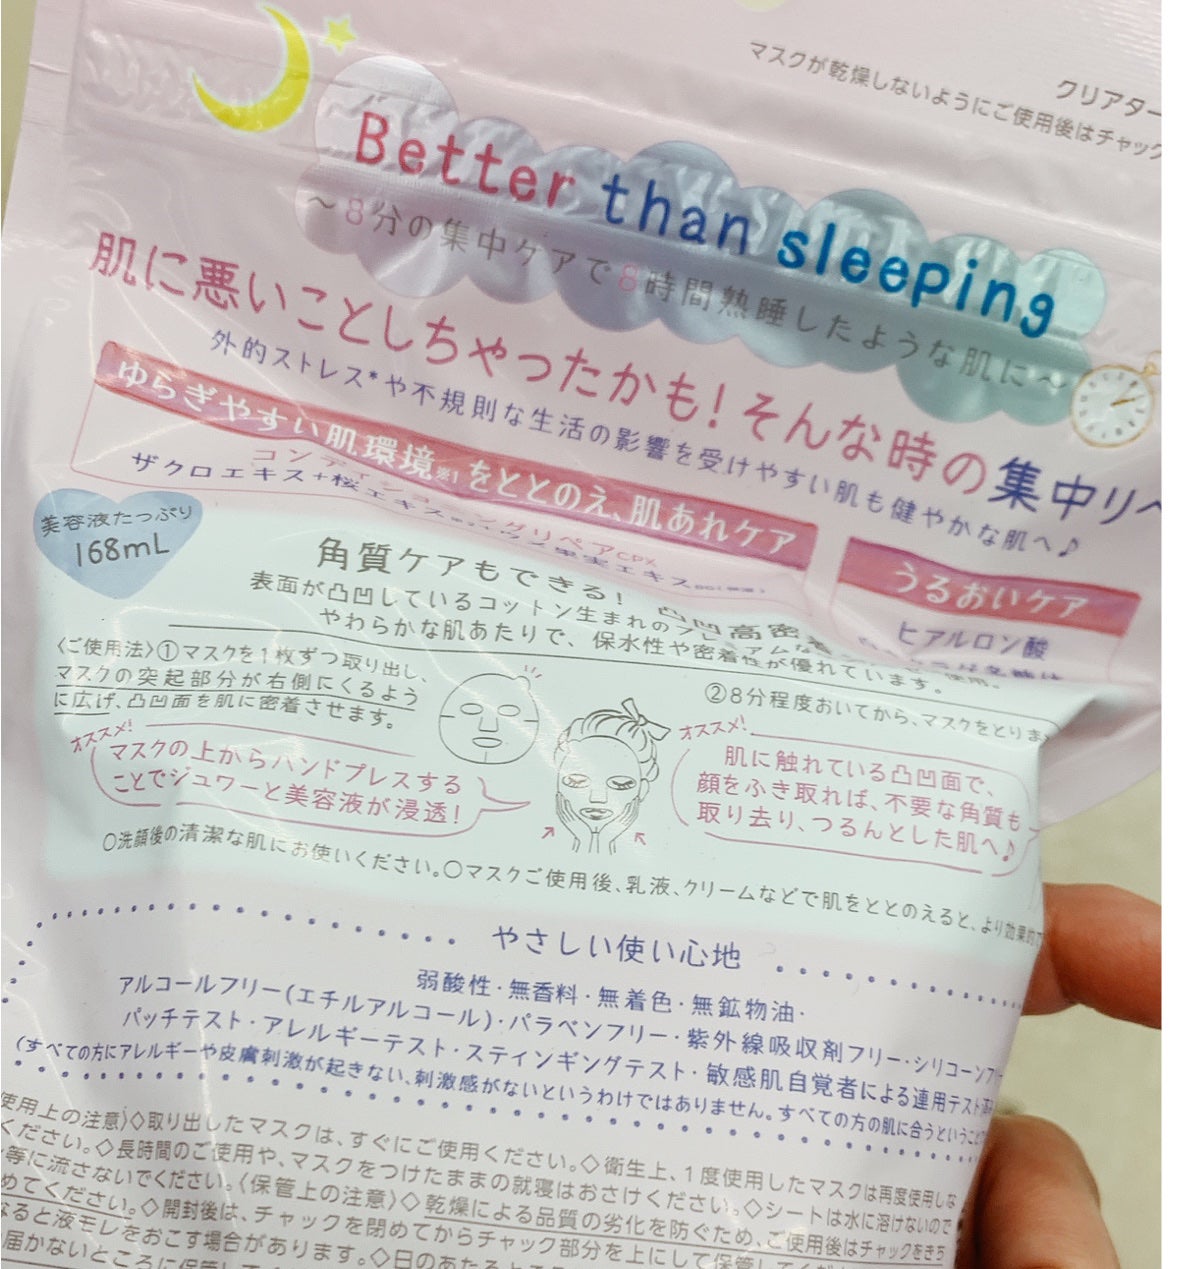 クリアター
マスクが乾燥しないようにご使用後はチャック
Better than sleeping
～8分の集中ケアで8時間熟睡したような肌に～
肌に悪いことしちゃったかも！そんな時の集中リペ
外的ストレス*や不規則な生活の影響を受けやすい肌も健やかな肌へ♪
ゆらぎやすい肌環境※1をととのえ、肌あれケア
コンディショニングリペアCPX
ザクロエキス+桜エキス
うるおいケア
ヒアルロン酸
美容液たっぷり
168mL
角質ケアもできる！ 凸凹高密着
表面が凸凹しているコットン生まれのプレミアムな
やわらかな肌あたりで、保水性や密着性が優れています。
〈ご使用法〉①マスクを1枚ずつ取り出し、
マスクの突起部分が右側にくるよう
に広げ、凸凹面を肌に密着させます。
オススメ!
マスクの上からハンドプレスする
ことでジュワーと美容液が浸透！
②8分程度おいてから、マスクをとりま
オススメ!
肌に触れている凸凹面で、
顔をふき取れば、不要な角質も
取り去り、つるんとした肌へ♪
○洗顔後の清潔な肌にお使いください。○マスクご使用後、乳液、クリームなどで肌をととのえると、より効果的で
やさしい使い心地
弱酸性・無香料・無着色・無鉱物油・
アルコールフリー(エチルアルコール)・パラベンフリー・紫外線吸収剤フリー・シリコーンフリー
パッチテスト・アレルギーテスト・スティンギングテスト・敏感肌自覚者による連用テスト済み
(すべての方にアレルギーや皮膚刺激が起きない、刺激感がないというわけではありません。すべての方の肌に合うということで
使用上の注意〉◇取り出したマスクは、すぐにご使用ください。◇衛生上、1度使用したマスクは再度使用しな
ください。◇長時間のご使用や、マスクをつけたままの就寝はおさけください。◇シートは水に溶けないので
等に流さないでください。〈保管上の注意〉◇乾燥による品質の劣化を防ぐため、ご使用後はチャックをきち
めてください。◇開封後は、チャックを閉めてからチャック部分を上にして保管してくだ
なると液モレをおこす場合があります。◇日のあたるところ
届かないところに保管して